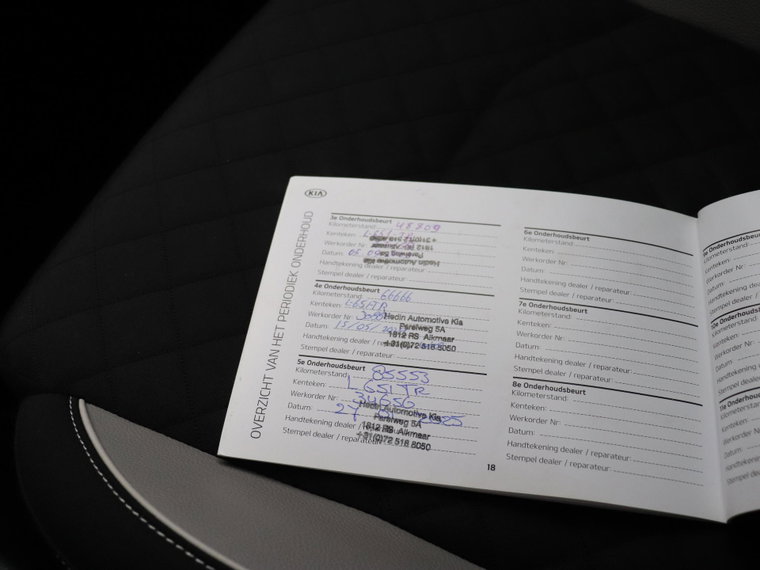 KIA
OVERZICHT VAN HET PERIODIEK ONDERHOUD
3e Onderhoudsbeurt
Kilometerstand: 48809
Kenteken:
Werkorder Nr:
Datum: 05
Handtekening dealer / reparateur:
Stempel dealer / reparateur:
Hedin Automotive Kia
Parelweg 5A
1812 RS Alkmaar
4e Onderhoudsbeurt
Kilometerstand: 66666
Kenteken: L651TR
Werkorder Nr:
Datum: 15/05/
Handtekening dealer /
Stempel dealer / reparateur:
Hedin Automotive Kia
Parelweg 5A
1812 RS Alkmaar
+31(0)72 518 5050
5e Onderhoudsbeurt
Kilometerstand: 85553
Kenteken: L651TR
Werkorder Nr: 34656
Datum: 27
Handtekening dealer /
Stempel dealer / reparateur:
Hedin Automotive Kia
Parelweg 5A
1812 RS Alkmaar
+31(0)72 518 5050
6e Onderhoudsbeurt
Kilometerstand:
Kenteken:
Werkorder Nr:
Datum:
Handtekening dealer / reparateur:
Stempel dealer / reparateur:
7e Onderhoudsbeurt
Kilometerstand:
Kenteken:
Werkorder Nr:
Datum:
Handtekening dealer / reparateur:
Stempel dealer / reparateur:
8e Onderhoudsbeurt
Kilometerstand:
Kenteken:
Werkorder Nr:
Datum:
Handtekening dealer / reparateur:
Stempel dealer / reparateur:
18
9e Onderhoudsbeurt
Kilometerstand:
Kenteken:
Werkorder Nr:
Datum:
Handtekening dealer
Stempel dealer / repa
Kilometerstand:
Kenteken:
Werkorder Nr:
Datum:
Handtekening dealer
Stempel dealer / repar
Kilometerstand:
Kenteken:
Werkorder Nr:
Datum:
Handtekening dealer
Stempel dealer / repar